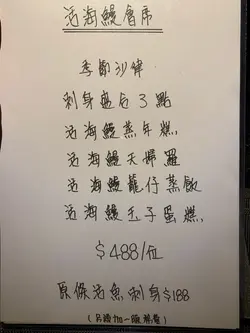 活海鰻會席
季節沙律
刺身盛合3點
活海鰻蒸年糕
活海鰻天婦羅
活海鰻籠仔蒸飯
活海鰻玉子蛋糕
$488/位
原條活魚刺身$188
(另續加一服務費)